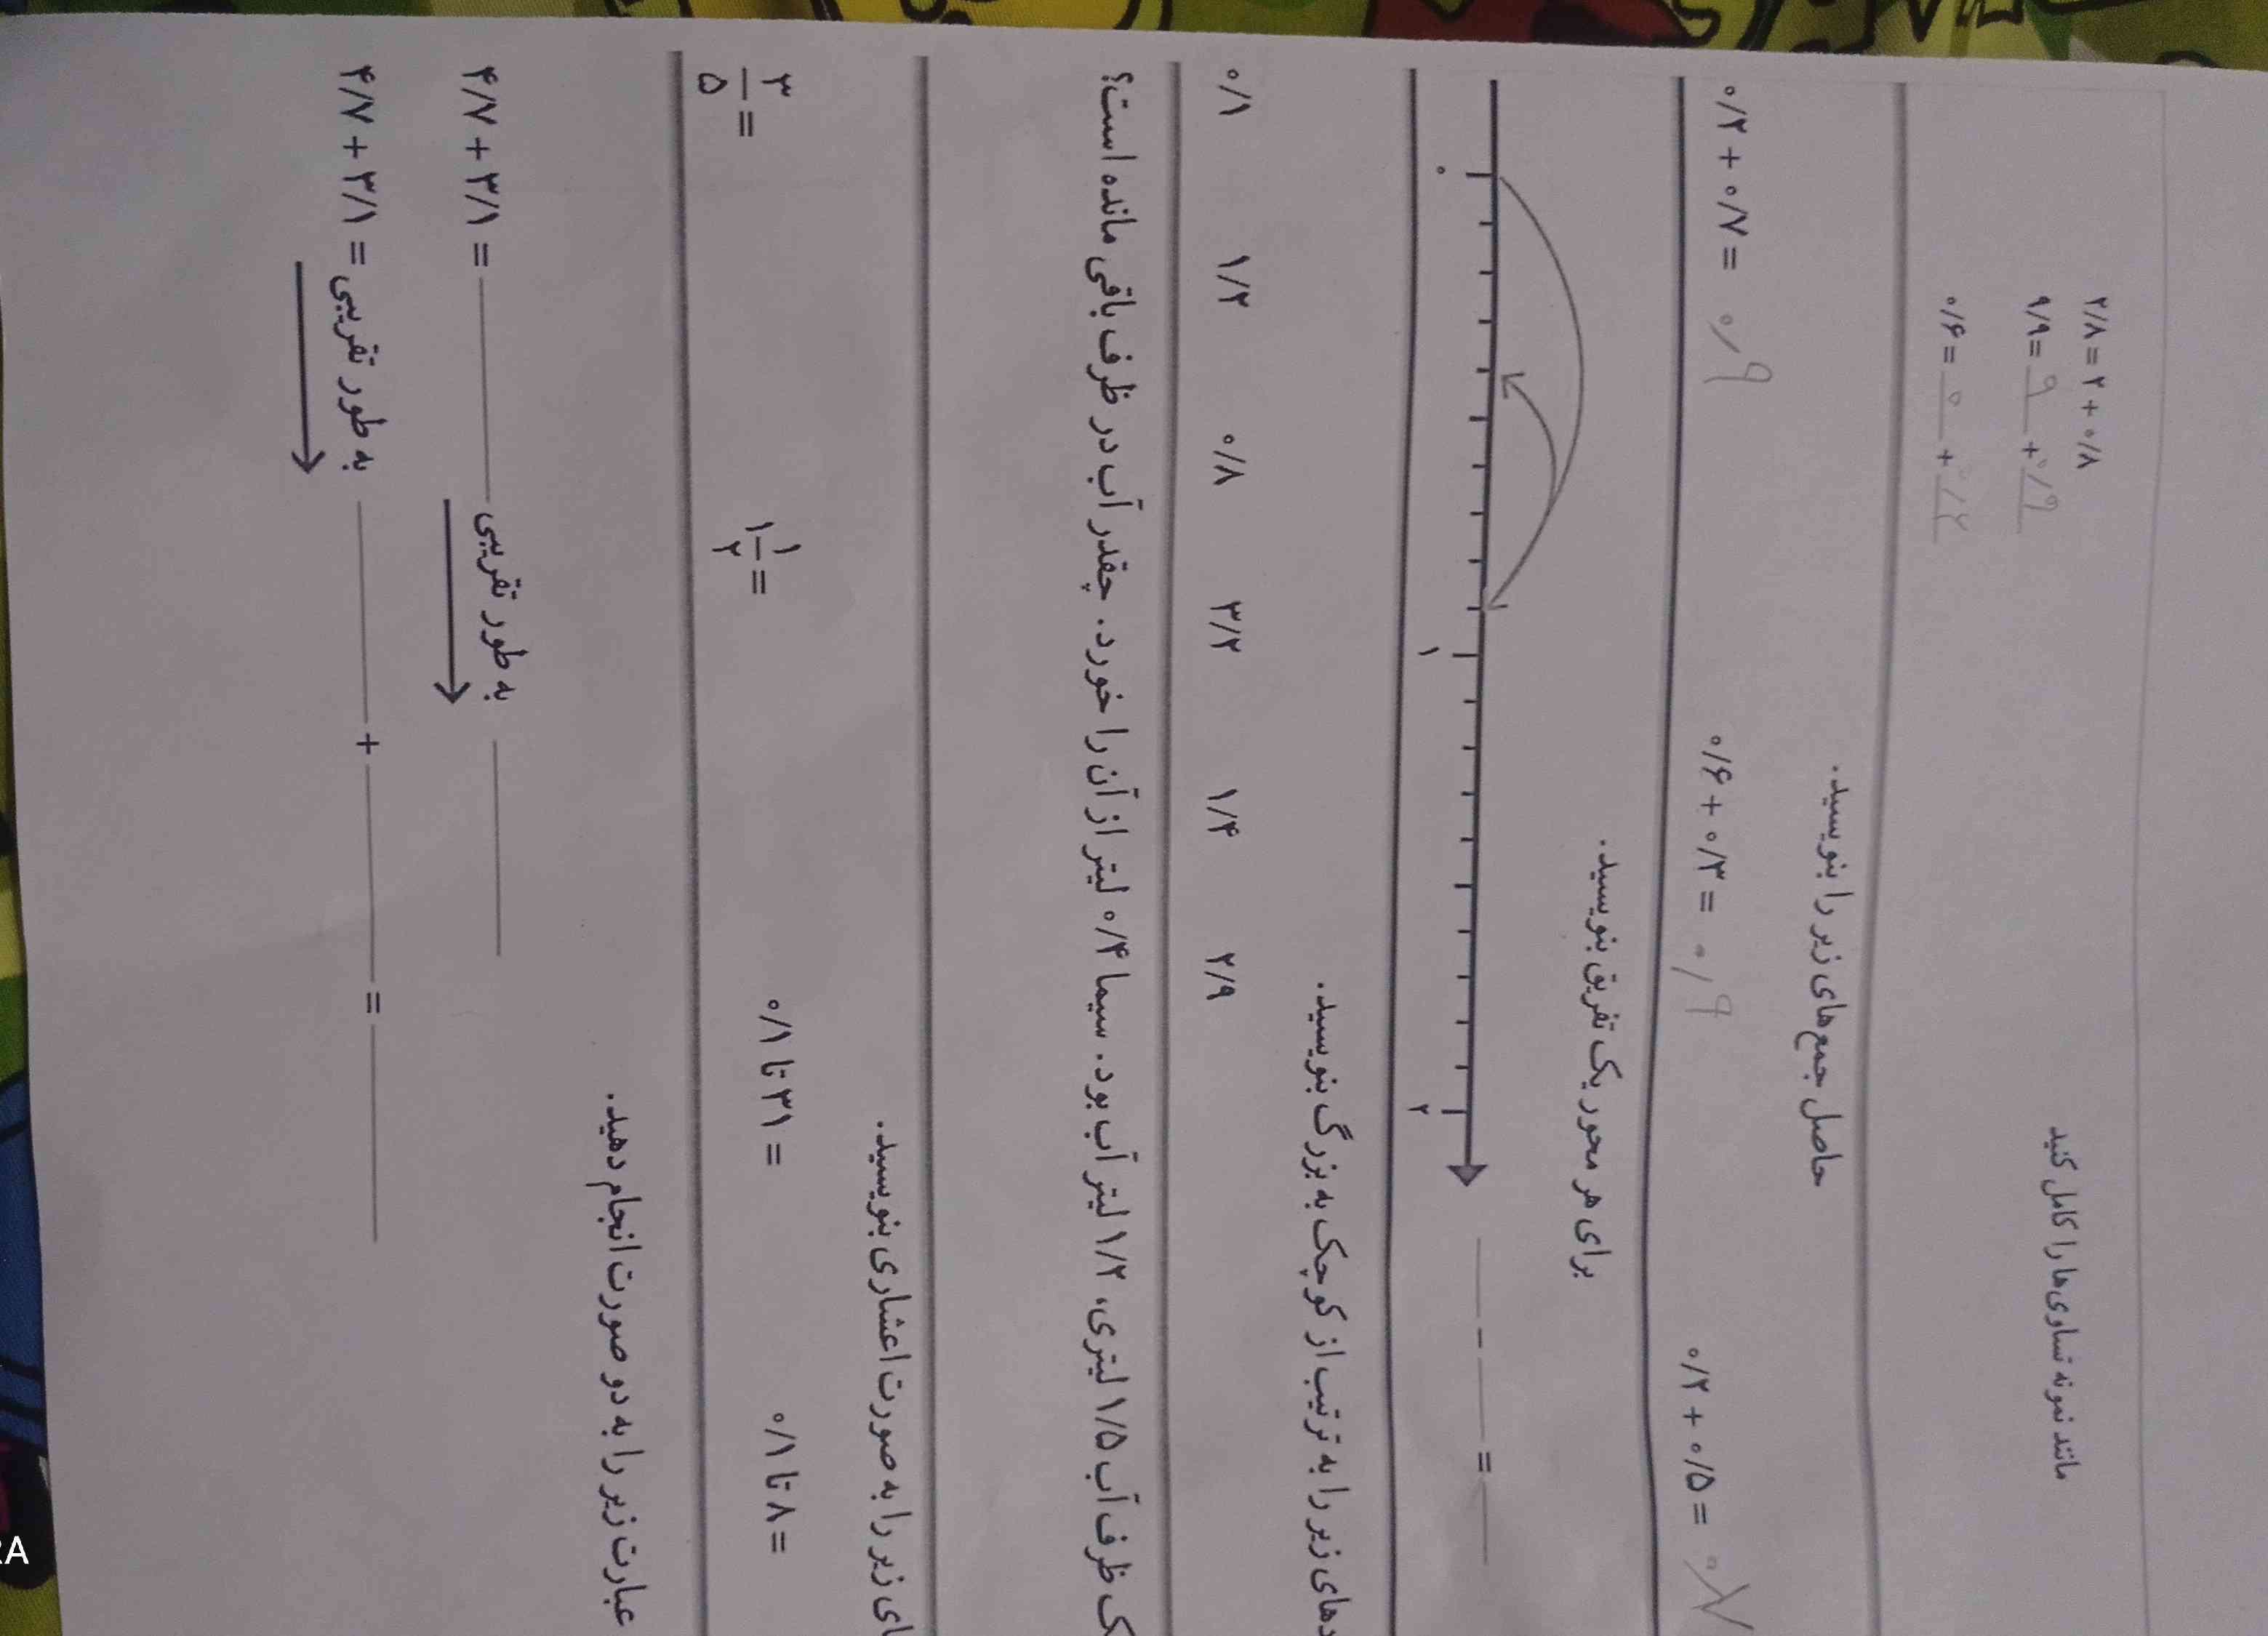 مانند نمونه تساوی‌ها را کامل کنید
۲/۸ = ۲ + ۰/۸
۹/۹ = ۹ + ۰/۹
۰/۶ = ۰ + ۰/۶
حاصل جمع‌های زیر را بنویسید.
۰/۲ + ۰/۷ = ۰/۹ ۰/۶ + ۰/۳ = ۰/۹ ۰/۲ + ۰/۵ = ۰/۷
برای هر محور یک تفریق بنویسید.
۰ ۱ ۲ - =
دهای زیر را به ترتیب از کوچک به بزرگ بنویسید.
۰/۱ ۱/۲ ۰/۸ ۳/۲ ۱/۴ ۲/۹
ک ظرف آب ۱/۵ لیتری، ۱/۲ لیتر آب بود. سیما ۰/۴ لیتر از آن را خورد. چقدر آب در ظرف باقی مانده است؟
ای زیر را به صورت اعشاری بنویسید.
۳/۵ = ۱ ۱/۲ = ۳۱ تا ۰/۱ = ۸ تا ۰/۱ =
عبارت زیر را به دو صورت انجام دهید.
۴/۷ + ۳/۱ = به طور تقریبی
۴/۷ + ۳/۱ = به طور تقریبی + =
RA